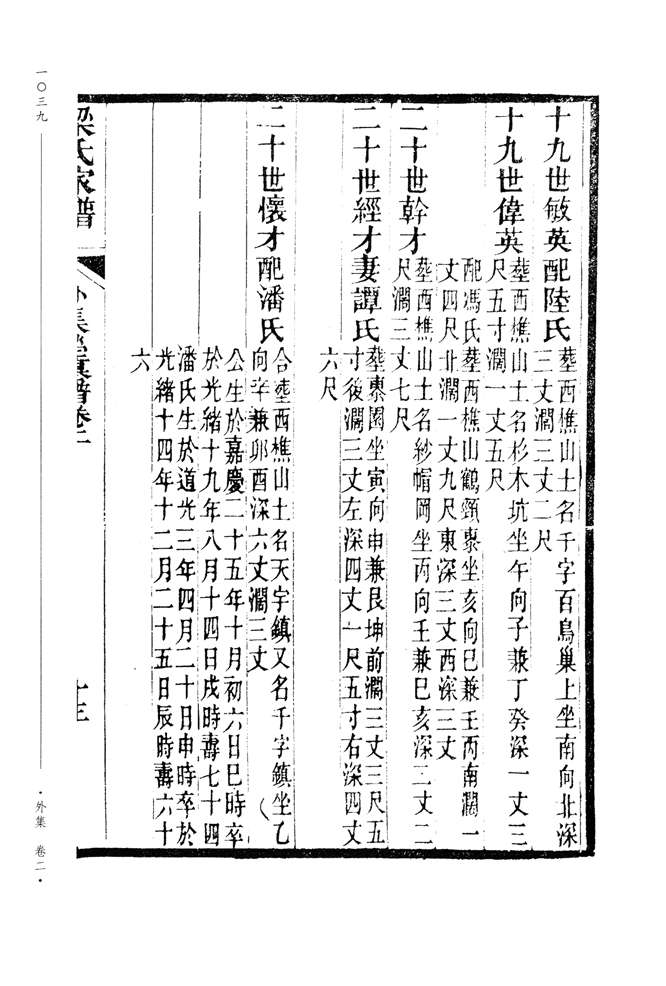 十九世敏英配陸氏
葬西樵山土名千字百鳥巢上坐南向北深
三丈濶三丈二尺
十九世偉英
葬西樵山土名杉木坑坐午向子兼丁癸深一丈三
尺五寸濶一丈五尺
配馮氏葬西樵山鶴頸寨坐亥向巳兼壬丙南濶一
丈四尺北濶一丈九尺東深三丈西深三丈
二十世幹才
葬西樵山土名紗帽岡坐丙向壬兼巳亥深二丈二
尺濶三丈七尺
二十世經才妻譚氏
葬棗園坐寅向申兼艮坤前濶三丈三尺五
寸後濶三丈左深四丈一尺五寸右深四丈
六尺
二十世懷才配潘氏
合葬西樵山土名天字鎮又名千字鎮坐乙
向辛兼卯酉深六丈濶三丈
公生於嘉慶二十五年十月初六日巳時卒
於光緒十九年八月十四日戌時壽七十四
潘氏生於道光三年四月二十日申時卒於
光緒十四年十二月二十五日辰時壽六十
六
梁氏家譜
外集
卷二
十三
一〇三九
·外集 卷二·